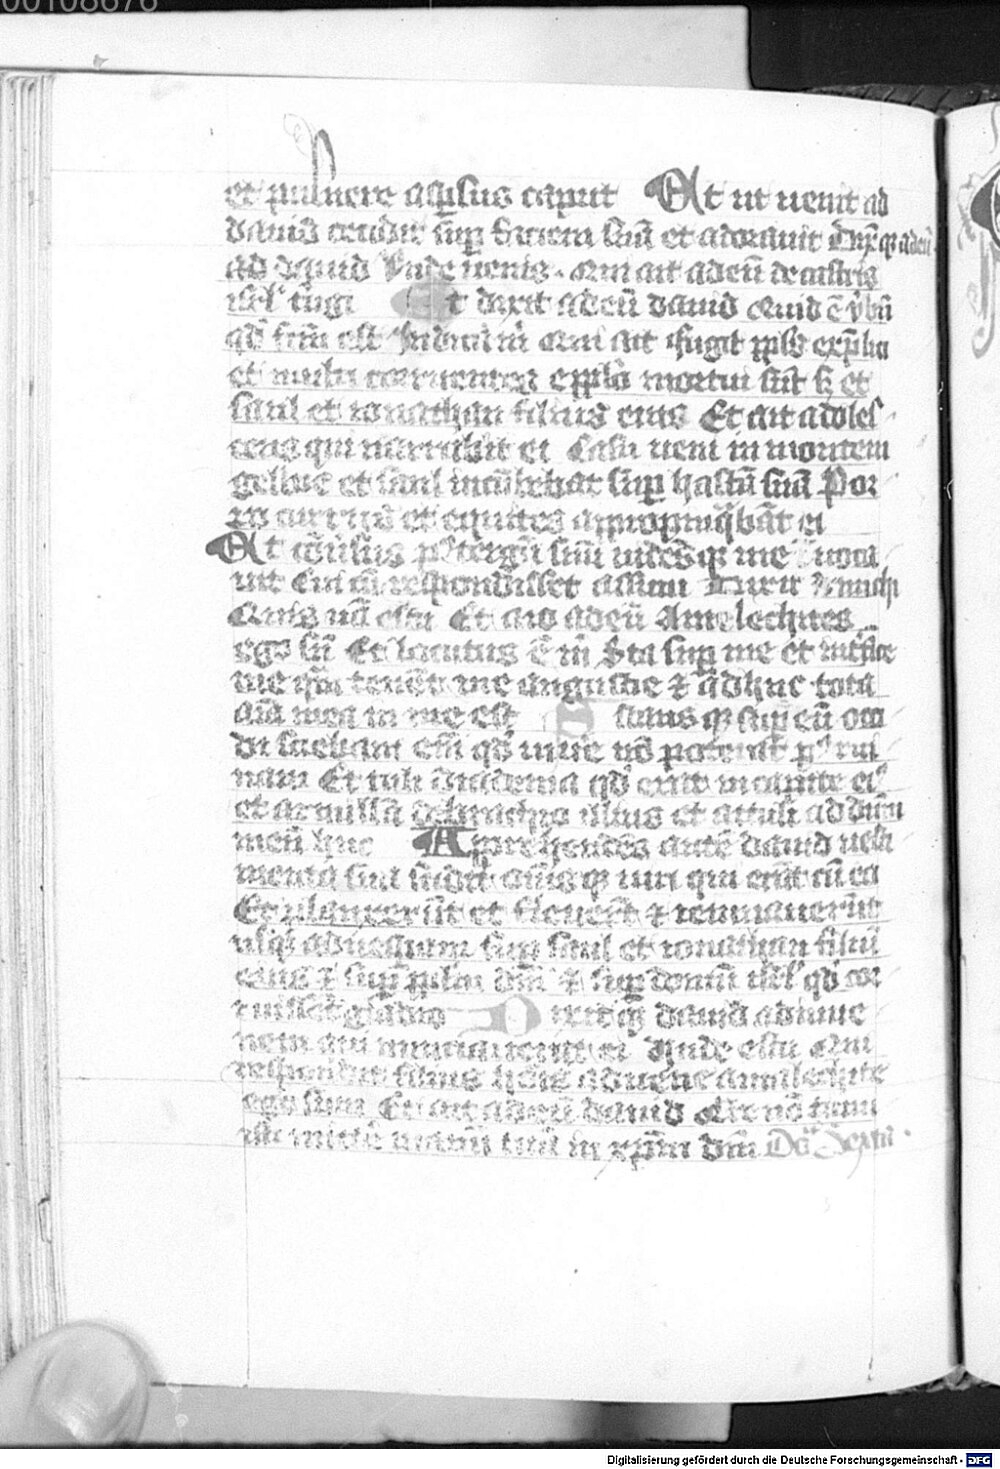 00108676
et puluere aspsus caput Et ut uenit ad
dauid cecidit sup faciem suā et adorauit Dixꝫ qꝫ adeū
ad dauid Vnde uenis. Qui ait adeū de castris
isrl' fugi Et dixit adeū dauid Quid ē ūbū
qd' fcm̄ est Indica m̄ Qui ait fugit ppls' ex plio
et multi corruentes e pplo mortui sūt sꝫ et
saul et ionathan filius eius Et ait adoles
cens qui narrabat ei Casu ueni in montem
gelboe et saul incūbebat sup hastā suā Por
ro currus et equites appropinqbāt ei
Et cōuersus p' tergū suū uidēs qꝫ me uoca
uit Cui cū respondisset assum Dixit michi
Quis nā es tu Et aio adeū Amalechites
ego sū Et locutus ē m̄ Sta sup me et int̄fice
me qm̄ tenēt me angustie ⁊ adhuc tota
aīa mea in me est Stans qꝫ sup eū occi
di sciebam em̄ qd' uiuē nō poterat p' rui
nam Et tuli diadema qd' erat in capite ei'
et armillā de brachio illius et attuli ad dnm̄
meū huc Apprehendes autē dauid uesti
menta sua scidit om̄s qꝫ uiri qui erāt cū eo
Et planxerūt et fleuerūt ⁊ ieiunauerūt
usqꝫ ad uesperam sup saul et ionathan filiū
eius ⁊ sup pplm dn̄i ⁊ sup domū isrl' qd' cor
ruisset gladio Dixit qꝫ dauid ad iuue
nem qui nunciauerat ei Vnde es tu Qui
respondit filius hois aduene amalechite
ego sum Et ait adeū dauid Q̄re nō timu
isti mittē manū tuā in xp̄m dn̄i
Digitalisierung gefördert durch die Deutsche Forschungsgemeinschaft - DFG